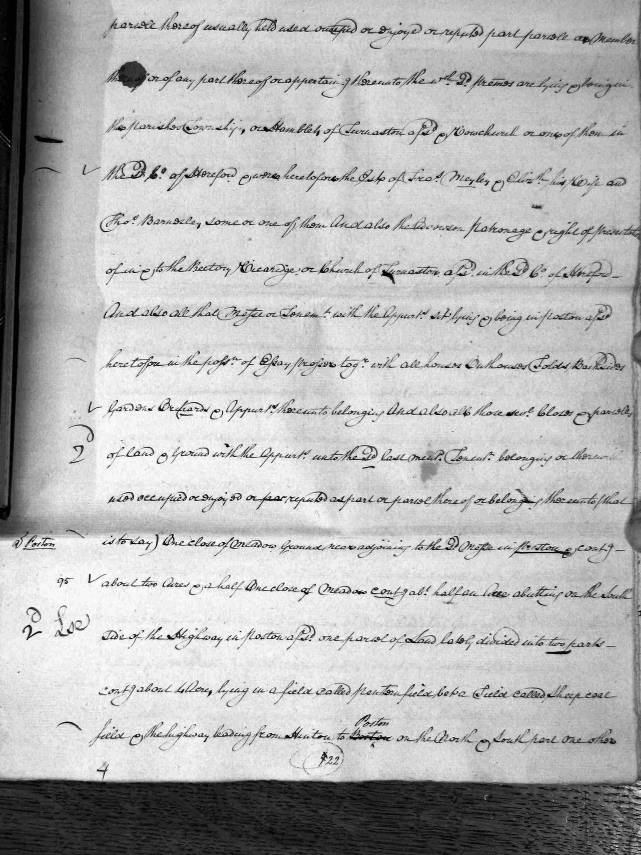 parcell thereof usually held used occupied or enjoyed or reputed part parcele or Member
thereof or of any part thereof or appertaing thereunto the wch. sd. premes are lying & being in
the parishes Township, or Hamblet, of Turnaston afsd & Vowchurch or one of them in
the sd. Co. of Hereford & were heretofore the Este of & Elizth. his Wife and
Thos. Barnesley, some or one of them And also the Advowson Patronage & right of presentat
of in & to the Rectory Vicaridge, or Church of Turnaston afsd. in the sd. Co. of Hereford –
And also all that Messe or Tenemt. with the Appurts. set lying & being in Poston afsd
heretofore in the possn. of Essay Prosser togr. with all houses Outhouses Folds Backsides
Gardens Orchards & Appurts. thereunto belonging And also all those sevl. Closes & parcells
of land & Ground with the Appurts. unto the sd last ment. Tenemt. belonging or therewith
used occupied or enjoyed or reputed as part or parcel thereof or belonging thereunto (that
Poston is to say) One close of Meadow Ground near adjoining to the sd. Messe in Poston & contg –
95 about two Acres & a half One close of Meadow contg abt. half an Acre abutting on the South
2d Lse side of the Highway in Poston afsd. one parcel of Land lately divided into two parts –
contg about Acres lying in a field called field betw. a Field called Sheep coat
field & the highway leading from Hinton to Poston on the North & South part one other
122
4